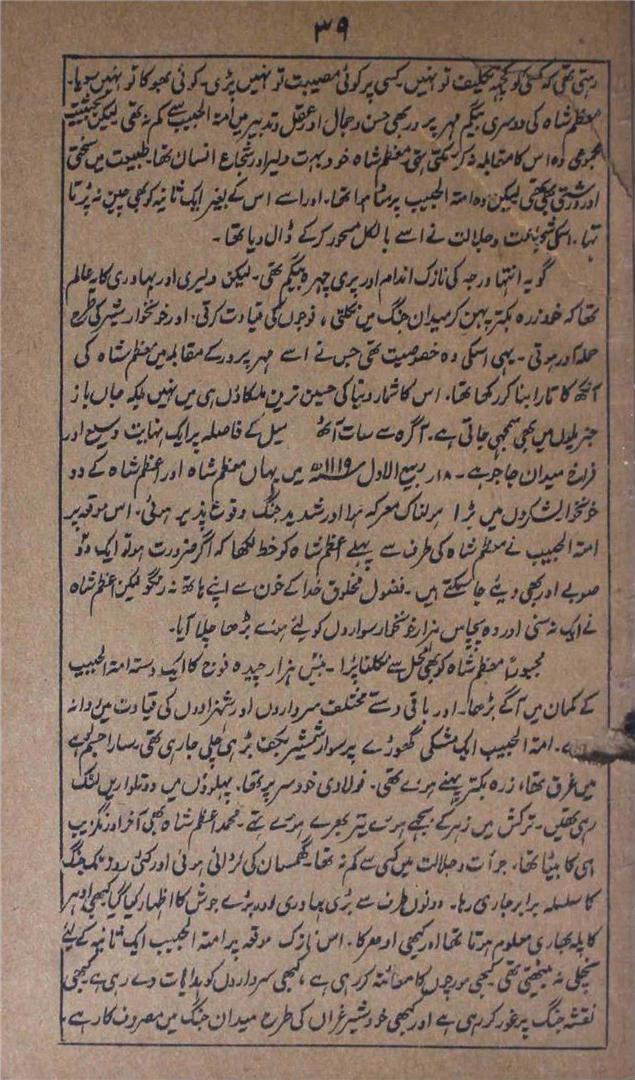 ۳۹
رہتی تھی کہ کسی کو کچھ تکلیف تو نہیں۔ کسی پر کوئی مصیبت تو نہیں پڑی۔ کوئی بھوکا تو نہیں سویا۔
معظم شاہ کی دوسری بیگم مہر پرور بھی حسن و جمال اور عقل و تدبیر میں امۃ الحبیب سے کم نہ تھی لیکن بحیثیت
مجموعی وہ اس کا مقابلہ نہ کر سکتی تھی۔ معظم شاہ خود بہت دلیر اور شجاع انسان تھا۔ طبیعت میں سختی
اور درشتی بھی تھی لیکن وہ امۃ الحبیب پر مٹا ہوا تھا۔ اور اسے اس کے بغیر ایک ثانیہ کو بھی چین نہ پڑتا
تھا۔ اسکی شجاعت و جلالت نے اسے بالکل مسحور کر کے ڈال دیا تھا۔
گو یہ انتہا درجہ کی نازک اندام اور پری چہرہ بیگم تھی۔ لیکن دلیری اور بہادری کا یہ عالم
تھا کہ خود زرہ بکتر پہن کر میدان جنگ میں نکلتی، فوجوں کی قیادت کرتی۔ اور خونخوار شیر کی طرح
حملہ آور ہوتی۔ یہی اسکی وہ خصوصیت تھی جس نے اسے مہر پرور کے مقابلہ میں معظم شاہ کی
آنکھ کا تارا بنا کر رکھا تھا۔ اس کا شمار دنیا کی حسین ترین ملکاؤں ہی میں نہیں بلکہ جاں باز
جنریلوں میں بھی سمجھی جاتی ہے۔ آگرہ سے سات آٹھ میل کے فاصلہ پر ایک نہایت وسیع اور
فراخ میدان جاجو ہے۔ ۱۸ ربیع الاول ۱۱۱۹ھ میں یہاں معظم شاہ اور اعظم شاہ کے دو
خونخوار لشکروں میں بڑا ہولناک معرکہ ہوا اور شدید جنگ وقوع پذیر ہوئی۔ اس موقعہ پر
امۃ الحبیب نے معظم شاہ کی طرف سے پہلے اعظم شاہ کو خط لکھا کہ اگر ضرورت ہو تو ایک دو
صوبے اور بھی دیئے جا سکتے ہیں۔ فضول مخلوق خدا کے خون سے اپنے ہاتھ نہ رنگو لیکن اعظم شاہ
نے ایک نہ سنی اور وہ پچاس ہزار خونخوار سواروں کو لئے ہوئے بڑھا چلا آیا۔
مجبوراً معظم شاہ کو بھی محل سے نکلنا پڑا۔ بیس ہزار چیدہ فوج کا ایک دستہ امۃ الحبیب
کے کمان میں آگے بڑھا۔ اور باقی دستے مختلف سرداروں اور شہزادوں کی قیادت میں روانہ
ہوئے۔ امۃ الحبیب ایک مشکی گھوڑے پر سوار شمشیر بکف بڑھی چلی جا رہی تھی۔ سارا جسم لوہے
میں غرق تھا، زرہ بکتر پہنے ہوئے تھی۔ فولادی خود سر پر تھا۔ پہلوؤں میں دو تلواریں لٹک
رہی تھیں۔ ترکش میں زہر کے بجھے ہوئے تیر بھرے ہوئے تھے۔ محمد اعظم شاہ بھی آخر اورنگزیب
ہی کا بیٹا تھا۔ جرأت و جلالت میں کسی سے کم نہ تھا۔ گھمسان کی لڑائی ہوئی اور کئی روز تک جنگ
کا سلسلہ برابر جاری رہا۔ دونوں طرف سے بڑی بہادری اور بڑے جوش کا اظہار کیا گیا کبھی ادھر
کا پلہ بھاری معلوم ہوتا تھا اور کبھی ادھر کا۔ اس نازک موقعہ پر امۃ الحبیب ایک ثانیہ کے لئے
نچلی نہ بیٹھتی تھی۔ کبھی مورچوں کا معائنہ کر رہی ہے، کبھی سرداروں کو ہدایات دے رہی ہے کبھی
نقشہ جنگ پر غور کر رہی ہے اور کبھی خود شیر غراں کی طرح میدان جنگ میں مصروف کار ہے۔